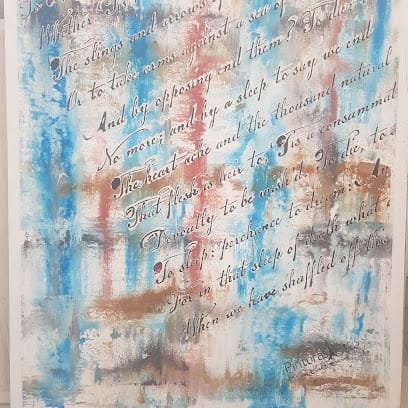 Whether 'Tis
The slings and arrows
Or to take arms against a sea of
And by opposing end them? To die
No more; and by a sleep to say we end
The heart ache and the thousand natural
That flesh is heir to, 'Tis a consummat
Devoutly to be wish'd. To die, to
To sleep: perchance to dream:
For in that sleep of death what
When we have shuffled off